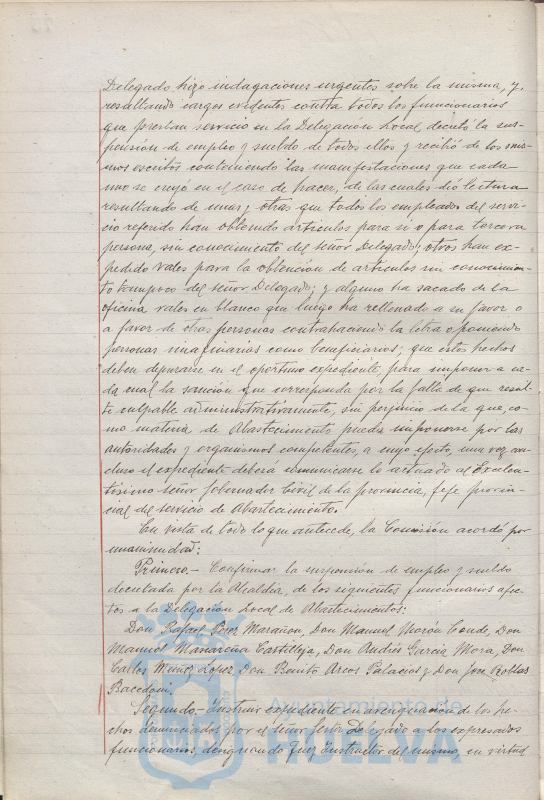 Delegado hizo indagaciones urgentes sobre la misma, y,
resultando cargos evidentes contra todos los funcionarios
que prestan servicio en la Delegación Local decretó la sus-
pensión de empleo y sueldo de todos ellos y recibió de los mis-
mos escritos conteniendo las manifestaciones que cada
uno se creyó en el caso de hacer, de las cuales dió lectura
resultando de unas y otras que todos los empleados del servi-
cio referido han obtenido artículos para si o para tercera
persona, sin conocimiento del señor Delegado; otros han ex-
pedido vales para la obtención de artículos sin conocimien-
to tampoco del señor Delegado; y alguno ha sacado de la
oficina vales en blanco que luego ha rellenado a su favor o
a favor de otras personas contrahaciendo la letra o poniendo
personas imaginarias como beneficiarios; que estos hechos
deben depurarse en el oportuno expediente, para imponer a ca-
da cual la sanción que corresponda por la falta de que resul-
te culpable administrativamente, sin perjuicio de la que, co-
mo materia de Abastecimiento pueda imponerse por las
autoridades y organismos competentes, a cuyo efecto, una vez con-
cluso el expediente deberá comunicarse lo actuado al Excelen-
tísimo señor Gobernador Civil de la provincia, Jefe provin-
cial del servicio de Abastecimiento.
En vista de todo lo que antecede, la Comisión acordó por
unanimidad:
Primero.- Confirmar la suspensión de empleo y sueldo
decretada por la Alcaldía, de los siguientes funcionarios afec-
tos a la Delegación Local de Abastecimientos:
Don Rafael Pérez Marañon, Don Manuel Morón Conde, Don
Manuel Castilleja, Don Andrés García Mora, Don
Carlos Muñoz Lopez, Don Benito Arcos Palacios y Don José Robles
Bacedoni.
Segundo.- Instruir expediente en averiguación de los he-
chos denunciados por el señor Gestor Delegado a los expresados
funcionarios, designando Juez Instructor del mismo, en virtud
Ayuntamiento de
HUELVA